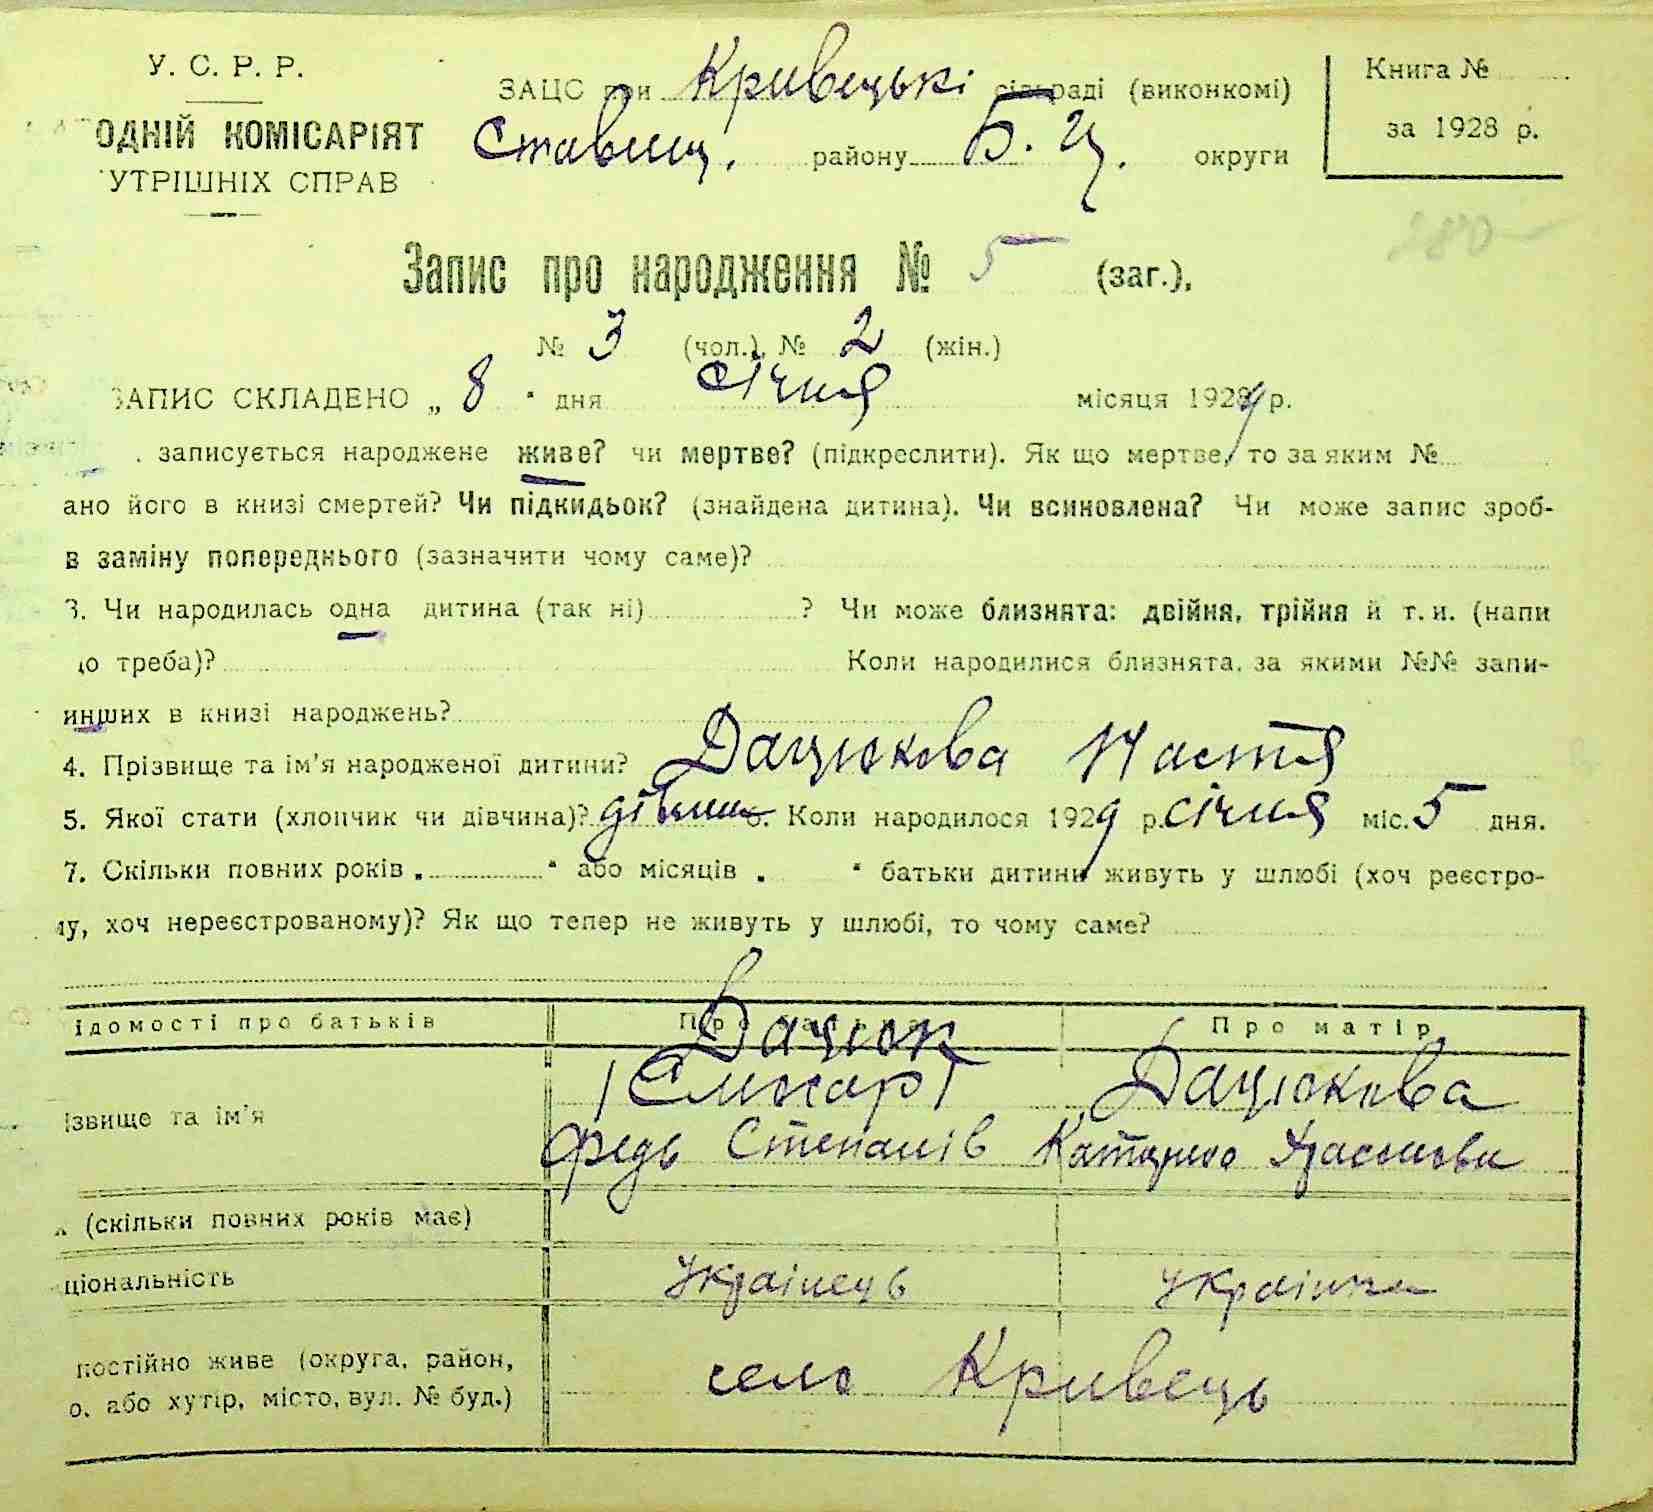 У. С. Р. Р.
ЗАЦС при Кривецькі сільраді (виконкомі)
Книга №
ОДНІЙ КОМІСАРІЯТ
Ставищ. району Б. Ц. округи
за 1928 р.
УТРІШНІХ СПРАВ
Запис про народження № 5 (заг.),
№ 3 (чол.), № 2 (жін.)
ЗАПИС СКЛАДЕНО „ 8 " дня січня місяця 1929 р.
. записується народжене живе? чи мертве? (підкреслити). Як що мертве, то за яким №
ано його в книзі смертей? Чи підкидьок? (знайдена дитина). Чи всиновлена? Чи може запис зроб-
в заміну попереднього (зазначити чому саме)?
3. Чи народилась одна дитина (так ні) ? Чи може близнята: двійня, трійня й т. и. (напи
до треба)? Коли народилися близнята, за якими №№ запи-
инших в книзі народжень?
4. Прізвище та ім'я народженої дитини? Дацюкова Настя
5. Якої стати (хлопчик чи дівчина)? дівчина 6. Коли народилося 1929 р. січня міс. 5 дня.
7. Скільки повних років „ " або місяців „ " батьки дитини живуть у шлюбі (хоч реєстро-
му, хоч нереєстрованому)? Як що тепер не живуть у шлюбі, то чому саме?
ідомості про батьків Про батька Про матір
Дацюк
ізвище та ім'я Дацюкова
Федь Степанів Катерина
(скільки повних років має)
ціональність Українець Українка
постійно живе (округа, район, село Кривець
о. або хутір, місто, вул. № буд.)